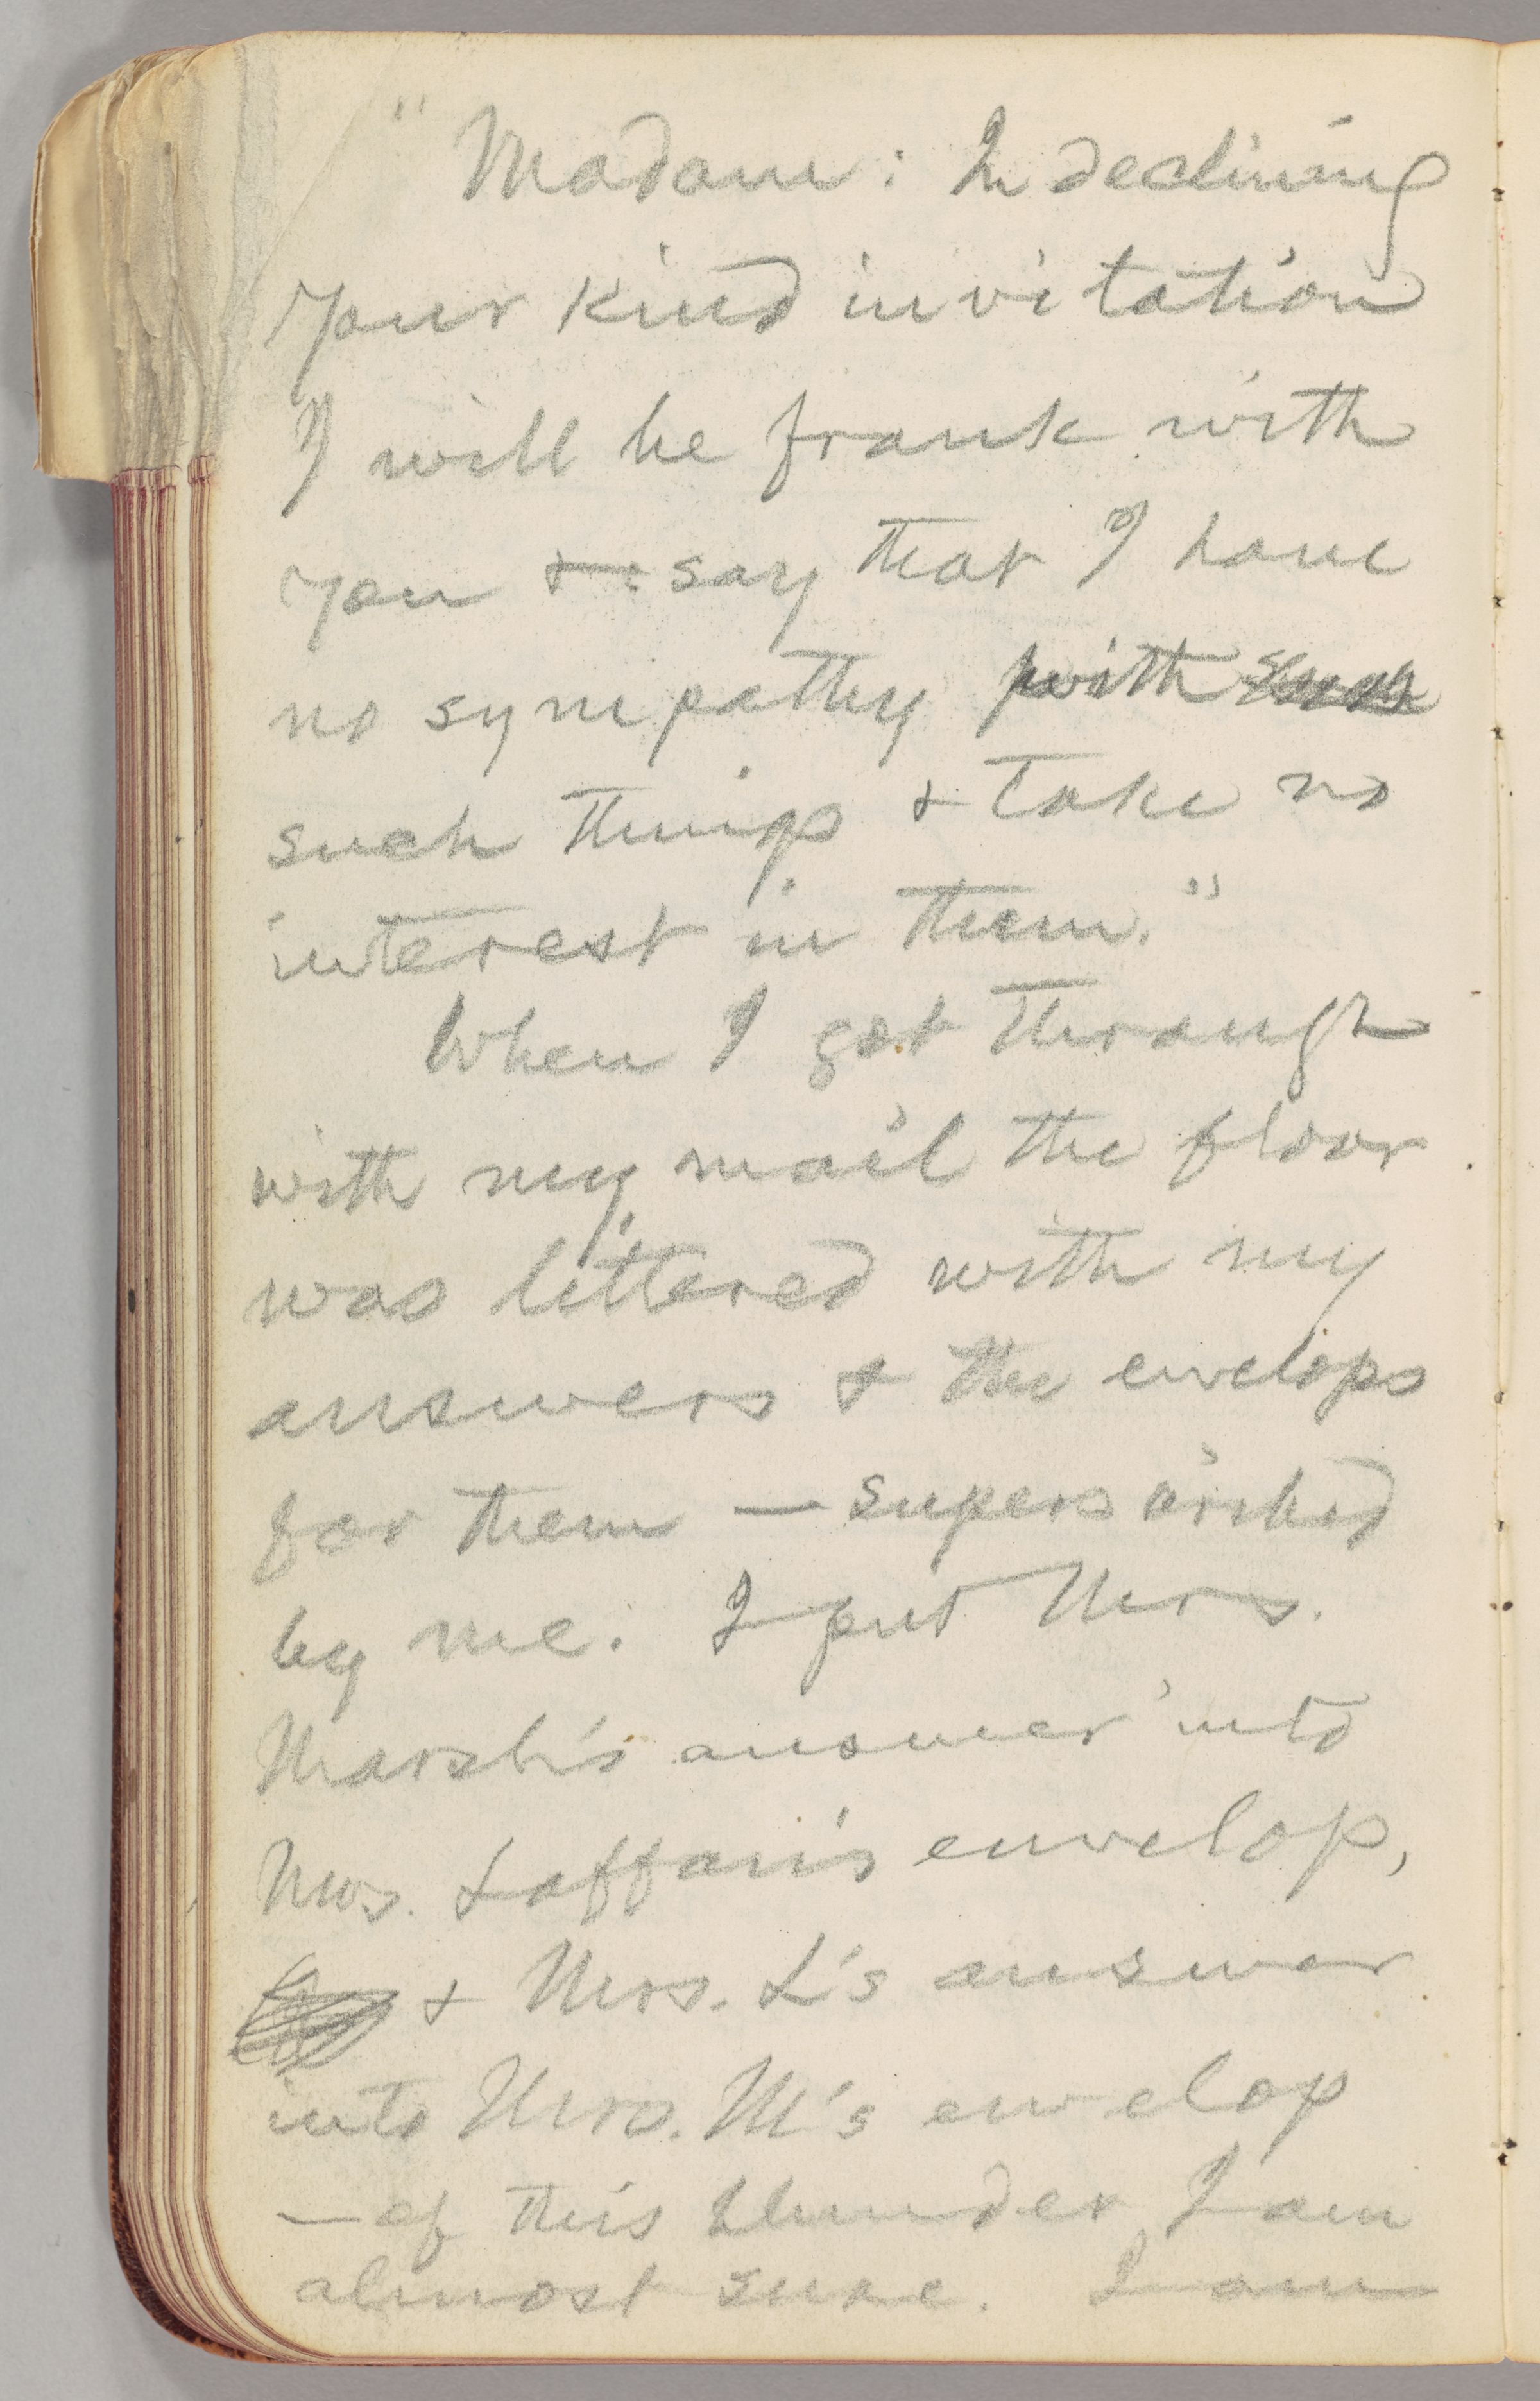 " Madam: In declining
your kind invitation
I will be frank with
you & say that I have
no sympathy with
such things & take no
interest in them."
When I got through
with my mail the floor
was littered with my
answers & the envelops
for them — superscribed
by me. I put Mrs.
Marsh's answer into
Mrs. Laffan's envelop,
& Mrs. L's answer
into Mrs. M's envelop
— of this blunder I am
almost sure. I am